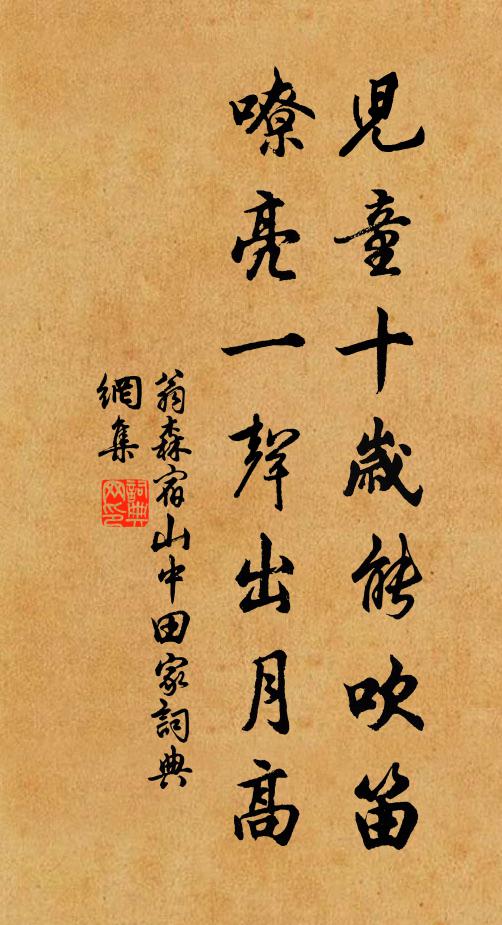 兒童十歲能吹笛
嘹亮一聲出月高
翁森宿山中田家詞典
網集
詞典
网印